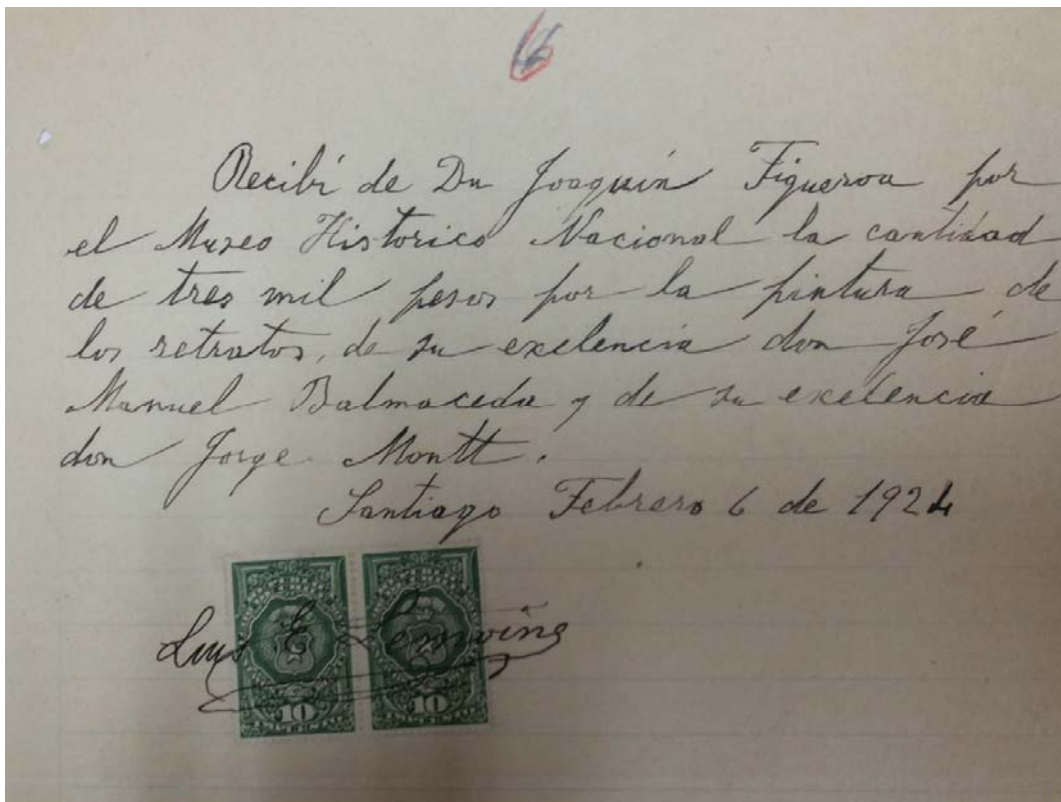 6
Recibí de Dn Joaquín Figueroa por
el Museo Historico Nacional la cantidad
de tres mil pesos por la pintura de
los retratos, de su exelencia don José
Manuel Balmaceda y de su exelencia
don Jorge Montt.
Santiago Febrero 6 de 1924
Luis E Lemoine
10 10